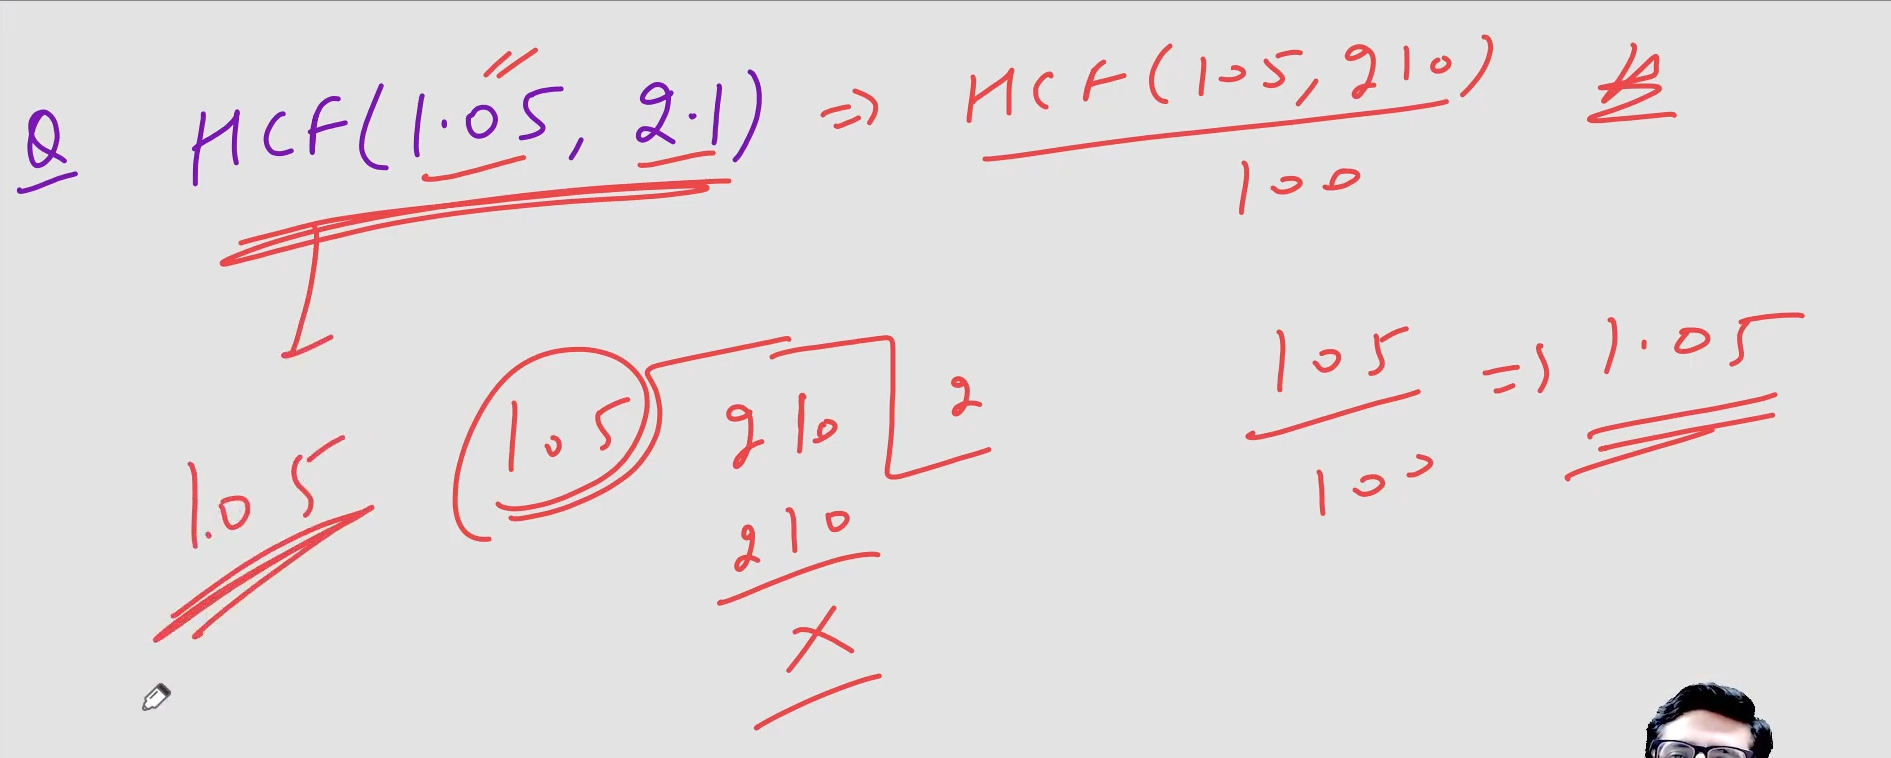 Q HCF(1.05, 2.1) => HCF(105, 210)
100
105 => 1.05
100
105 210 2
210
x
1.05